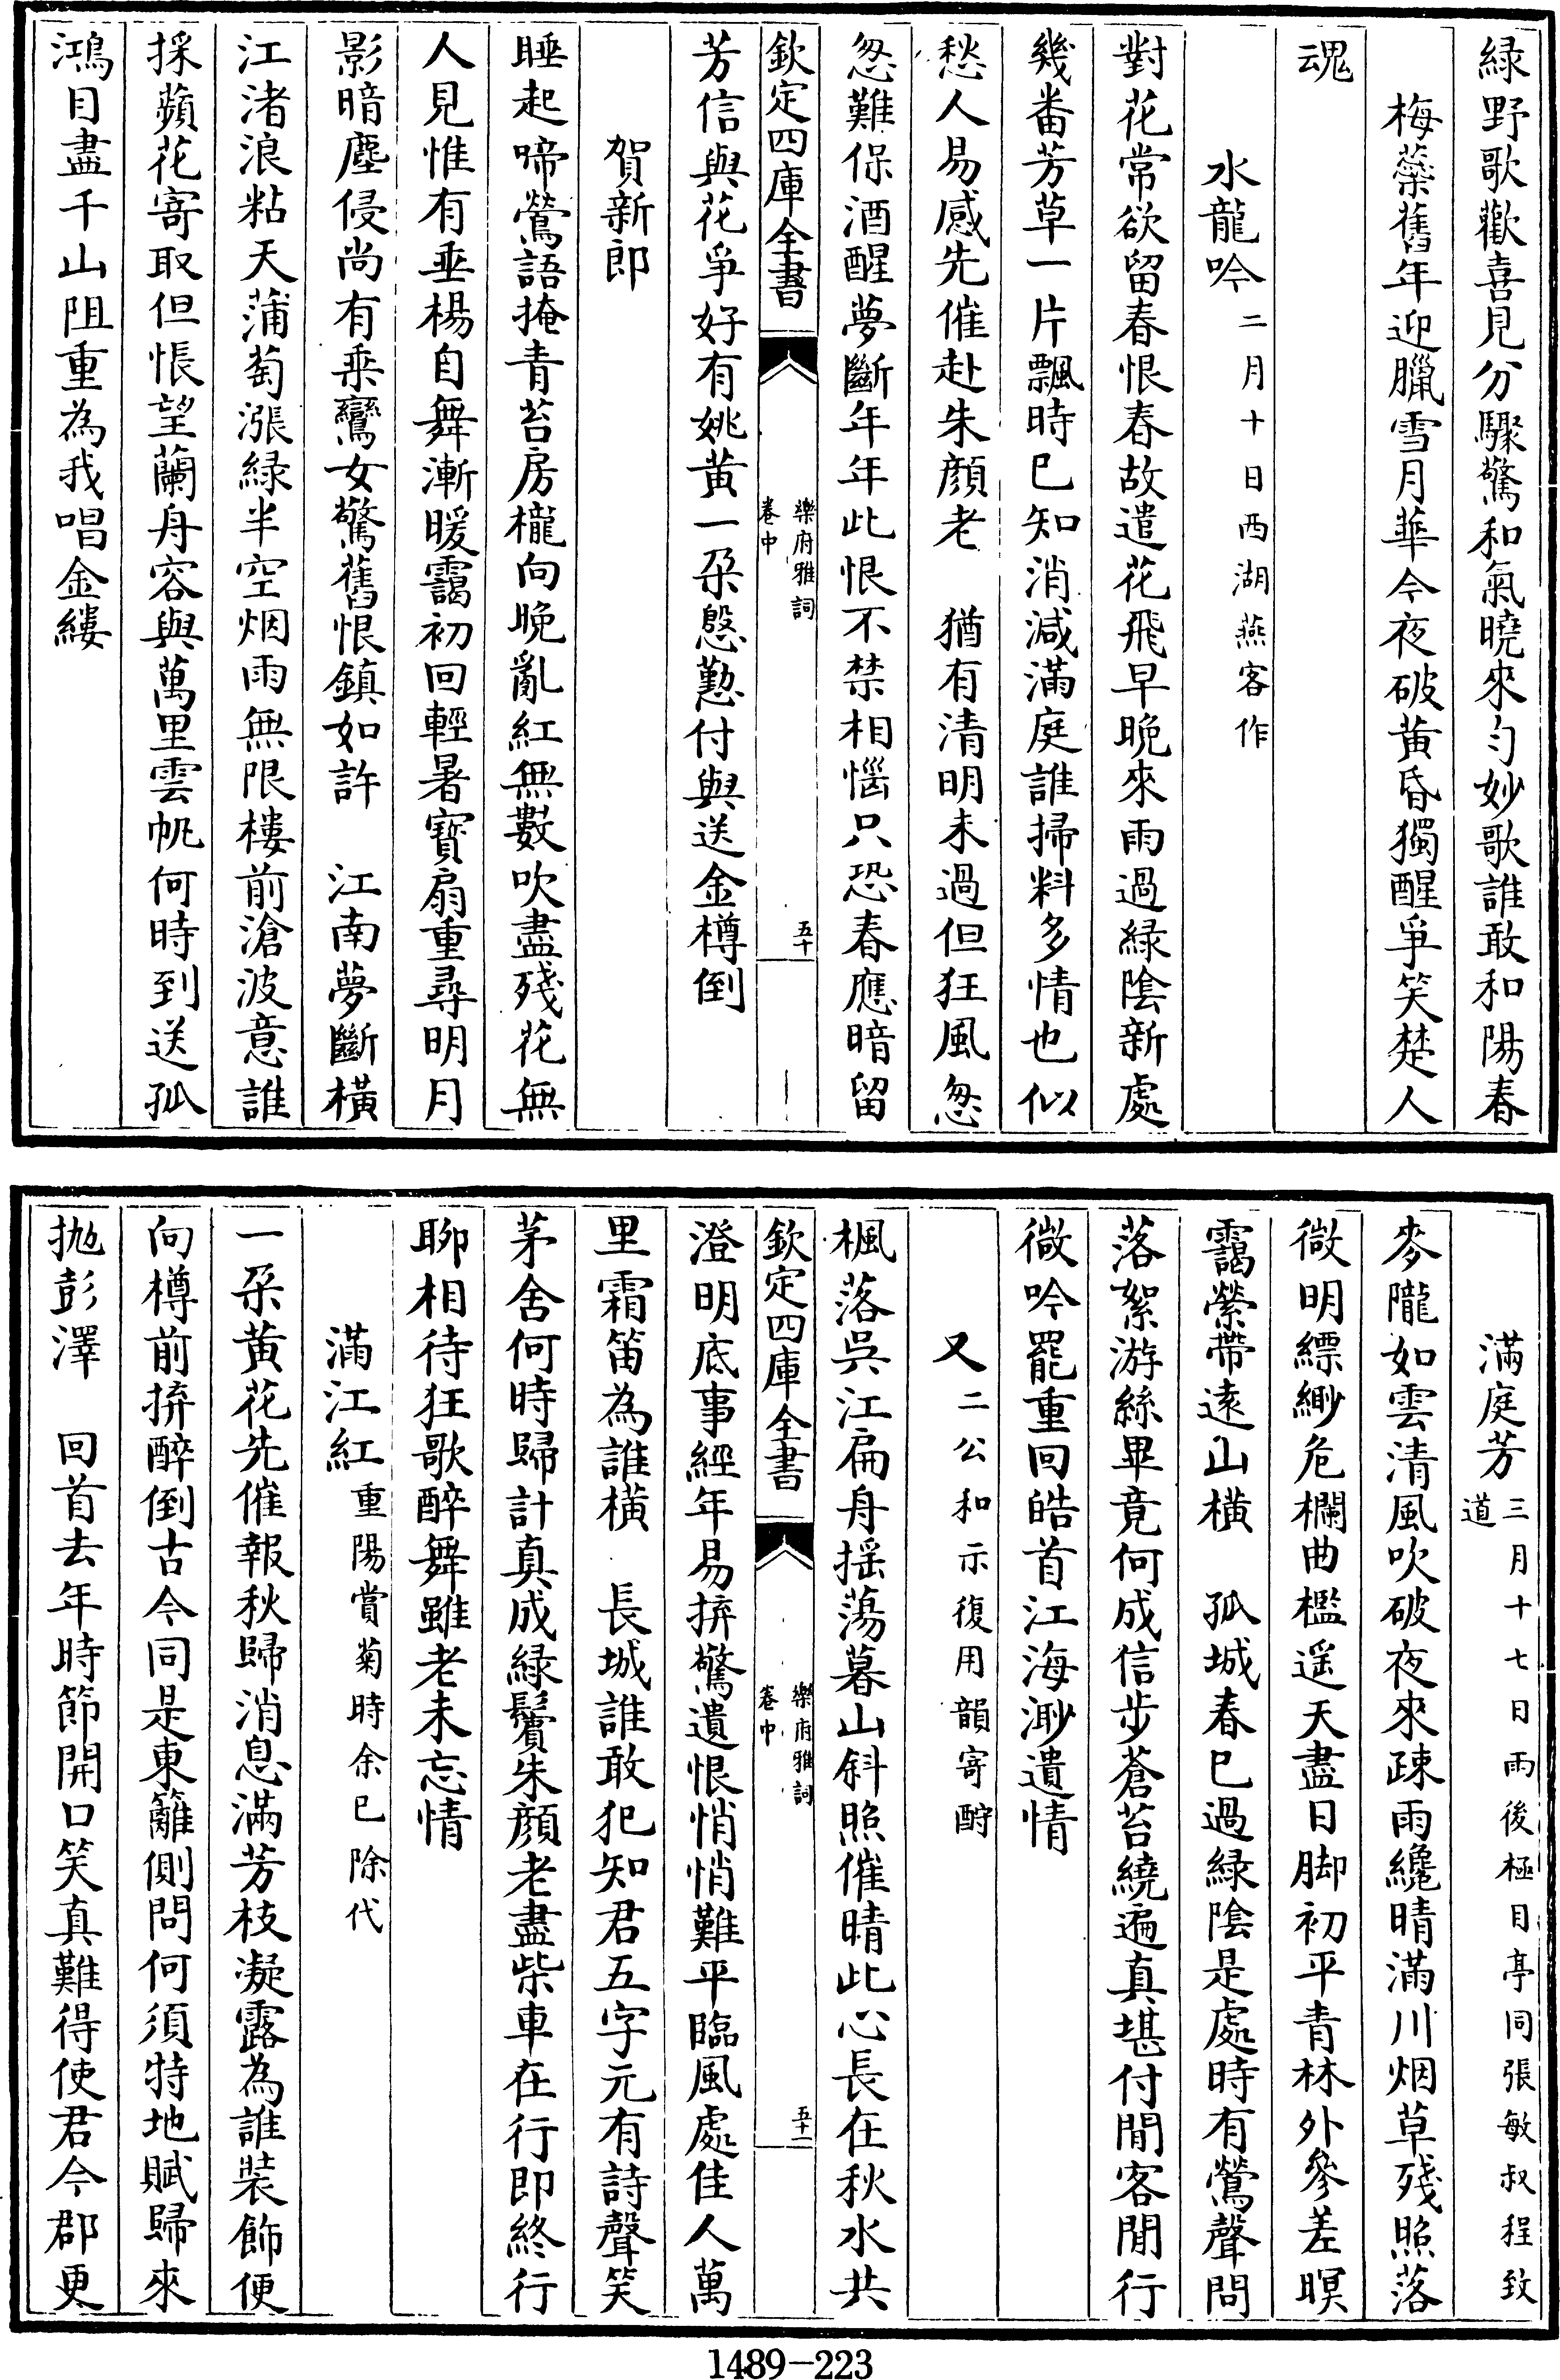 緑野歌歡喜見分驟驚和氣曉來勻妙歌誰敢和陽春
梅蘂舊年迎臘雪月華今夜破黃昏獨醒爭笑楚人
魂
水龍吟二月十日西湖燕客作
對花常欲留春恨春故遣花飛早晚來雨過緑陰新處
幾番芳草一片飄時已知消減滿庭誰掃料多情也似
愁人易感先催赴朱顔老　猶有清明未過但狂風怱
怱難保酒醒夢斷年年此恨不禁相惱只恐春應暗留
欽定四庫全書
樂府雅詞
卷中
五十
芳信與花爭好有姚黃一朶慇懃付與送金樽倒
賀新郎
睡起啼鶯語掩青苔房櫳向晚亂紅無數吹盡殘花無
人見惟有垂楊自舞漸暖靄初回輕暑寶扇重尋明月
影暗塵侵尚有乘鸞女驚舊恨鎮如許　江南夢斷橫
江渚浪粘天蒲萄漲緑半空烟雨無限樓前滄波意誰
採蘋花寄取但悵望蘭舟容與萬里雲帆何時到送孤
鴻目盡千山阻重為我唱金縷
滿庭芳三月十七日雨後極目亭同張敏叔程致
道
麥隴如雲清風吹破夜來疎雨纔晴滿川烟草殘照落
微明縹緲危欄曲檻遥天盡日脚初平青林外參差暝
靄縈帶遠山橫　孤城春已過緑陰是處時有鶯聲問
落絮游絲畢竟何成信步蒼苔繞遍真堪付閒客閒行
微吟罷重回皓首江海渺遺情
又二公和示復用韻寄酹
楓落吳江扁舟揺蕩暮山斜照催晴此心長在秋水共
欽定四庫全書
樂府雅詞
卷中
五十一
澄明底事經年易拚驚遺恨悄悄難平臨風處佳人萬
里霜笛為誰橫　長城誰敢犯知君五字元有詩聲笑
茅舍何時歸計真成緑鬢朱顔老盡柴車在行即終行
聊相待狂歌醉舞雖老未忘情
滿江紅重陽賞菊時余已除代
一朶黃花先催報秋歸消息滿芳枝凝露為誰裝飾便
向樽前拚醉倒古今同是東籬側問何須特地賦歸來
抛彭澤　回首去年時節開口笑真難得使君今郡更
1489-223